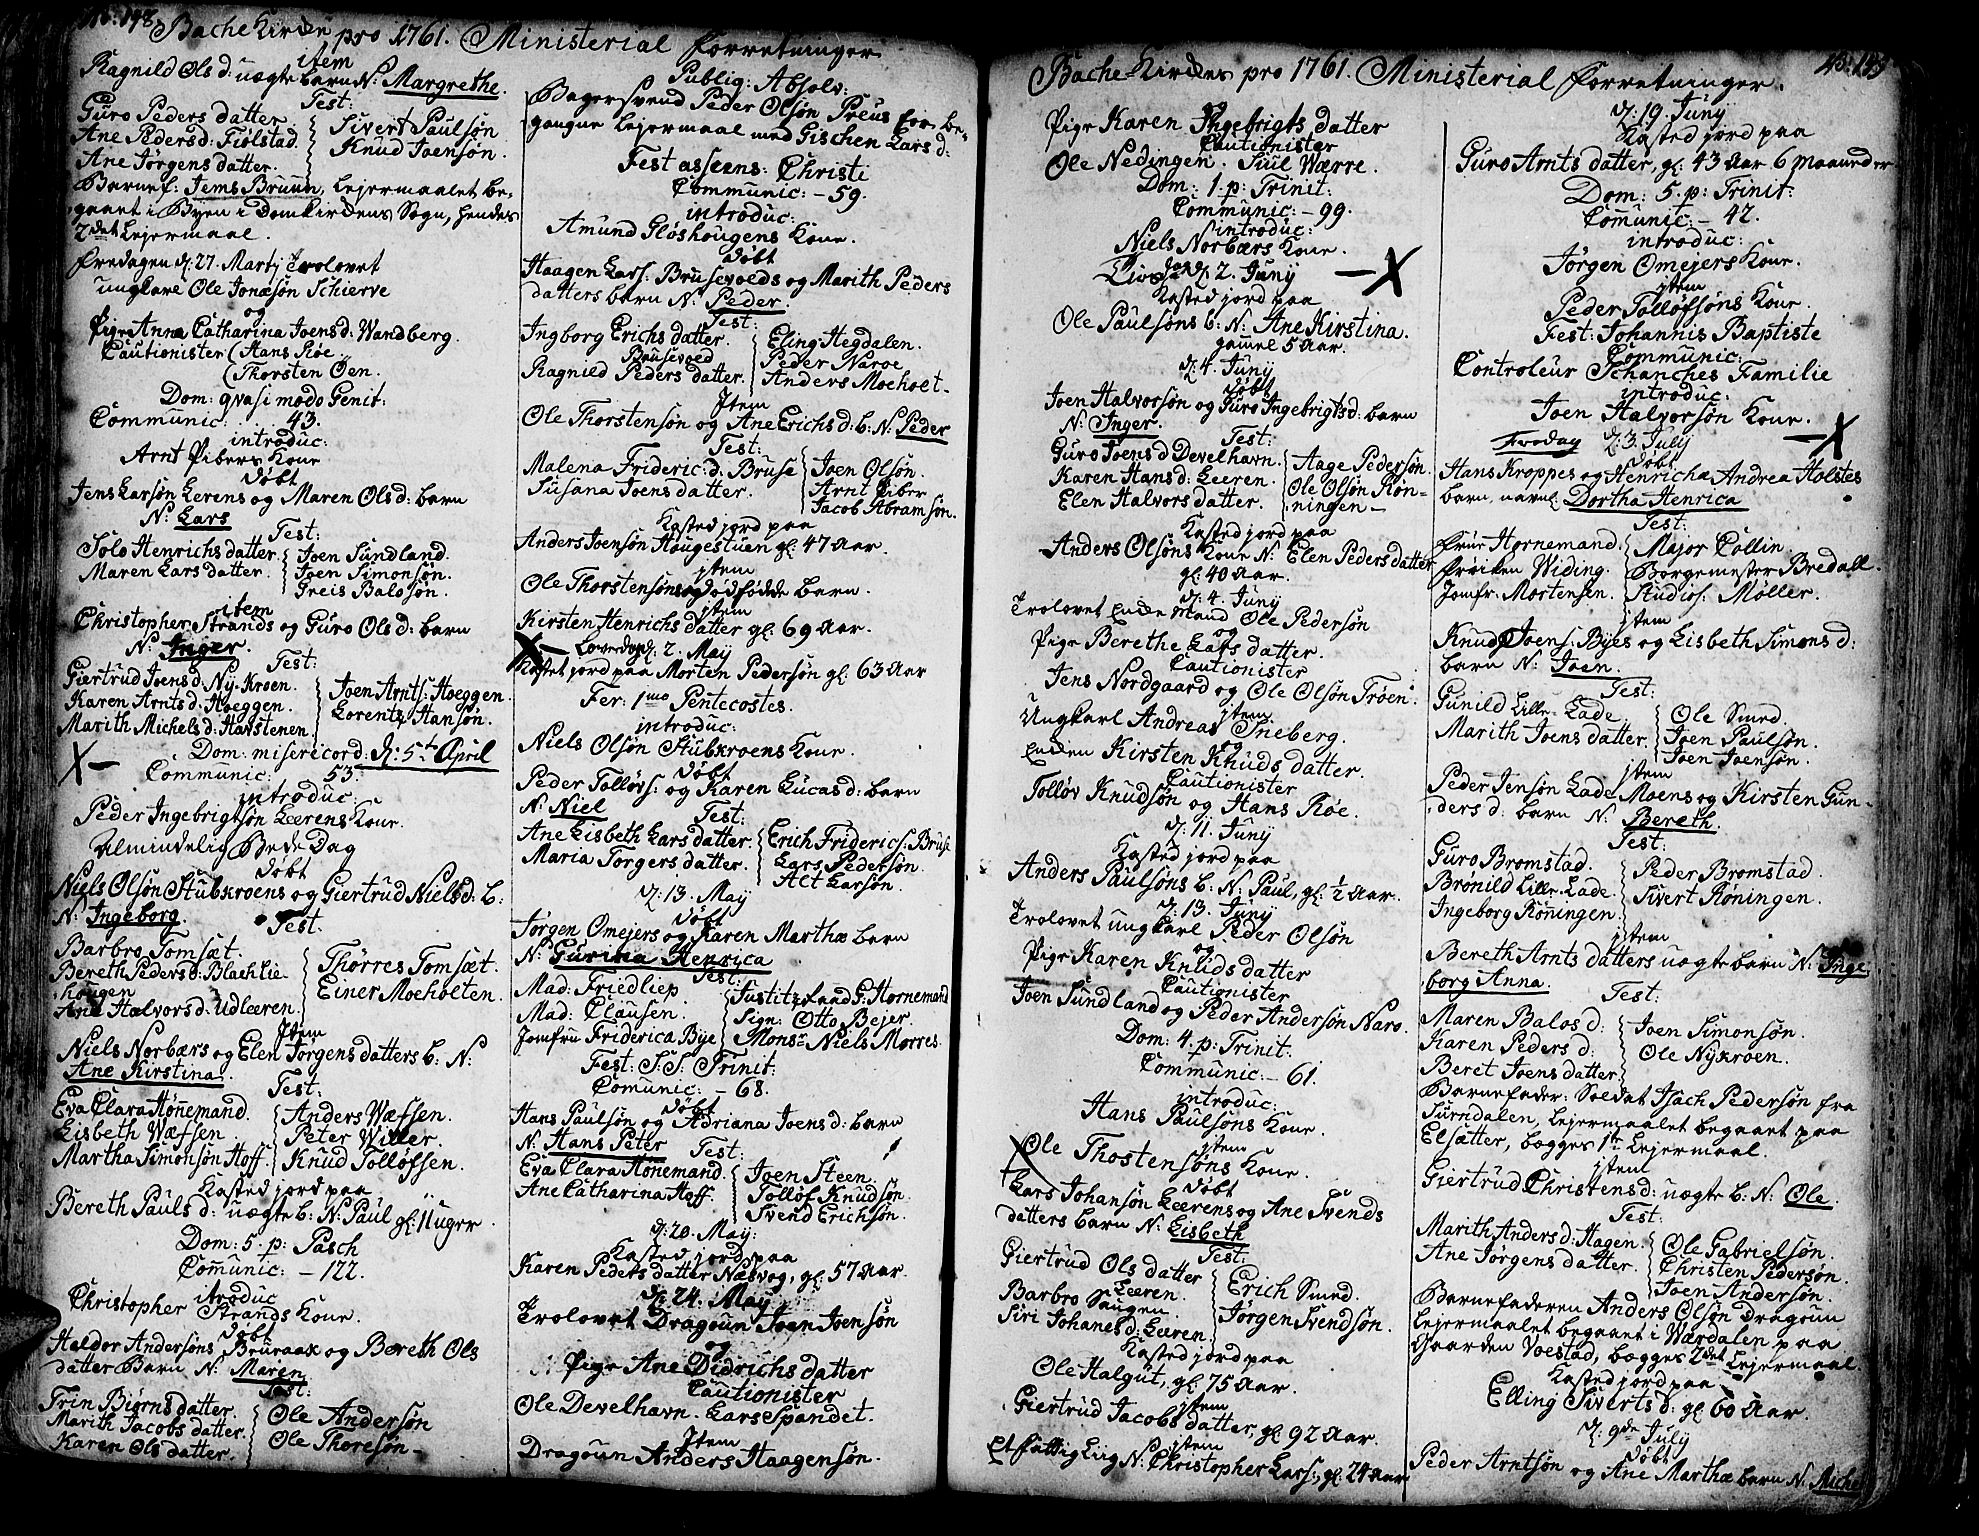 148 Bache Kirche pro 1761. Ministerial Forretninger
item
Ragnild Ols d: uægte barn N: Margrethe.
Test:
Guro Peders datter.
Ane Peders d: Fiølstad.
Ane Jørgens datter.
Sivert Paulsøn
Knud Joensøn.
Barnef: Jems Bruun, Lejermaalet be-
gaaet i Byen i Domkirchens Sogn, hendes
2det Lejermaal.
Fredagen d: 27. Martj Trolovet
ungkarl Ole Jonæsøn Schierve
og
Pige Anna Catharina Joens d: Wandberg.
Cautionister (Hans Røe.
(Thorsten Øen.
Dom: qvasi modo Genit:
Communic: 43.
introduc:
Arnt Pibers Kone
døbt
Jens Larsøn Lerens og Maren Ols d: barn
N: Lars
Test:
Solo Henrichs datter.
Maren Lars datter.
Joen Sundland.
Joen Simonsøn.
Greis Balosøn.
item
Christopher Strands og Guro Ols d: barn
N: Inger.
Test:
Giertrud Joens d: Ny-Kroen.
Karen Arnts d: Hoeggen.
Marith Michels d: Havstenen
Joen Arnts: Hoeggen
Lorents Hansøn.
X- Dom: misericord: d: 5t April
Communic: 53.
introduc:
Peder Ingebrigtsøn Leerens Kone.
Almindelig Bede Dag
døbt
Niels Olsøn Stubkroens og Giertrud Niels d: b:
N: Ingeborg.
Test.
Barbro Tomsæt.
Bereth Peders d: Blachlie
hougen
Ane Halvors d: Udleeren.
Thorres Tomsæt.
Einer Moeholten.
Item
Niels Norbærs og Elen Jørgens datters b: N:
Ane Kirstina.
Test:
Eva Clara Hønnemand.
Lisbeth Wæfsen
Martha Simonsøn Hoff.
Anders Wæfsen.
Peter Willer.
Knud Tolløfsen.
Kasted jord paa
Bereth Pauls d: uægte b: N: Paul gl: 11 uger.
Dom: 5. p: Pasch
Communic: - 122.
itroduc
Christopher Strands Kone.
døbt
Haldor Andersøns Bruraak og Bereth Ols
datter Barn N: Maren
Test:
Trin Biørns datter.
Marith Jacobs datter.
Karen Ols datter.
Ole Andersøn
Ole Thoresøn-
Publiq: Absolv:
Bagersvend Peder Olsøn Preus for be-
gangne Lejermaal med Gischen Lars d:
Fest ascens: Christi
Communic: - 59.
introduc:
Amund Gløshougens Kone.
døbt
Haagen Lars: Brusevoeds og Marith Peders
datters barn N: Peder.
Test:
Ingborg Erichs datter.
Brusevoed
Ragnild Peders datter.
Eling Hegdalen.
Peder Naroe.
Anders Moeholt-
Item
Ole Thorstensøn og Ane Erichs d: b: N: Peder
Test:
Malena Frideric: d: Bruse
Susana Joens datter.
Joen Olsøn.
Arnt Piber
Jacob Abramsøn.
Kasted jord paa
Anders Joensøn Hougestuen gl: 47 Aar.
jtem
Ole Thorstensøns dødfødde barn.
jtem
Kirsten Henrichs datter gl: 69 Aar.
X- Løverdag d: 2. May
Kastet jord paa Morten Pedersøn gl: 63 Aar
Fer: 1mo Pentecostes.
introduc:
Niels Olsøn Stubkroens Kone.
døbt
Peder Tolløvs: og Karen Lucas d: barn
N: Niel
Test:
Ane Lisbeth Lars datter.
Maria Torgers datter.
Erich Friderics: Bruse
Lars Pedersøn.
Alt Larsøn.
d: 13. May
døbt
Jørgen Omejers og Karen Marthæ barn
N: Gurina Henrica
Test:
Mad: Friedliep
Mad: Clausen.
Jomfru Friderica Bye
Justitz raad G: Hornemand
Sign: Otto Bejer.
Monsr Niels Morres.
Fest: S.S. Trinit:
Communic: - 68.
døbt
Hans Paulsøn og Adriana Joens d: barn
N: Hans Peter
Test:
Eva Clara Hønemand.
Ane Catharina Hoff.
Joen Steen.
Tolløf Knudsøn.
Svend Erichsøn.
d: 20. May:
Kasted jord paa
Karen Peders datter Næsvog, gl: 57 Aar.
d: 24. May
Trolovet Dragoun Joen Joensøn
og
Pige Ane Didrichs datter
Cautionister
Ole Develhavn. Lars Spandet.
Item
Dragoun Anders Haagensøn.
Bache-Kirches pro 1761. Ministerial Forretninger.
og
Pige Karen Ingebrigts datter
Cautionister
Ole Nedingen. Siul Wærre.
Dom: 1. p: Trinit:
Communic: - 99.
introduc:
Niels Norbærs Kone.
d: 2. Juny -X
Kasted jord paa
Ole Paulsøns b: N: Ane Kirstina.
gamel 5 Aar.
d: 4. Juny
døbt
Joen Halvorsøn og Guro Ingebrigts d: barn
N: Inger.
Test:
Guro Joens d Develhavn.
Karen Hans d: Leeren.
Elen Halvors datter.
Aage Pedersøn.
Ole Olsøn Røn-
ningen-
Kasted jord paa
Anders Olsøns Kone N: Elen Peders datter
gl: 40 Aar.
d: 4. Juny
Trolovet Enche Mand Ole Pedersøn
og
Pige Berethe Lars datter.
Cautionister
Jens Nordgaard og Ole Olsøn Trøen.
jtem
Ungkarl Andreas Sneberg.
og
Enchen Kirsten Knuds datter.
Cautionister
Tolløv Knudsøn og Hans Røe.
d: 11. Juny
Kasted jord paa
Anders Paulsøns b: N: Paul, gl: ½ Aar.
d: 13. Juny
Trolovet ungkarl Peder Olsøn
og
Pige Karen Knuds datter
Cautionister
Joen Sundland og Peder Andersøn Naro.
Dom: 4. p: Trinit:
Communic: - 61.
introduc:
Hans Paulsøns Kone.
jtem
Ole Thostensøns Kone.
døbt
Lars Johansøn Leerens og Ane Svends
datters barn N: Lisbeth
Test:
Giertrud Ols datter
Leeren.
Barbro Saugen
Siri Johanes d: Leeren
Erich Smed.
Jørgen Svendsøn.
Kasted jord paa
Ole Halgut, gl: 75 Aar.
jtem
Giertrud Jacobs datter, gl: 92 Aar.
jtem
Et fattig Liig N: Christopher Lars:, gl: 24 Aar
d: 19. Juny
Kasted jord paa
Guro Arnts datter, gl: 43 Aar 6 maaneder
Dom: 5. p: Trinit:
Communic: - 42.
introduc:
Jørgen Omejers Kone.
jtem
Peder Tolløfsøns Kone.
Fest: Johannis Baptiste
Communic:
Controleur Schanches Familie
introduc:
Joen Halvorsøn Kone.
Fredag d: 3. July -X
døbt
Hans Kroppes og Henricha Andrea Holstes
barn navnl. Dortha Henrica
Test:
Frue Hornemand.
Frøiken Widing.
Jomfr: Mortensen.
Major Collin.
Borgemester Bredall.
Studios: Møller.
jtem
Knud Joens: Byes og Lisbeth Simons d:
barn N: Joen.
Test:
Gunild Lille-Lade
Marith Joens datter.
Ole Smed.
Joen Paulsøn.
Joen Joensøn.
jtem
Peder Jensøn Lade Moens og Kirsten Gun-
ders d: barn N: Bereth.
Test:
Guro Bromstad.
Brønild Lille-Lade.
Ingeborg Røningen.
Peder Bromstad.
Sivert Røningen.
jtem
Bereth Arnts datters uægte barn N: Inge
borg Anna.
Test:
Maren Balos d:
Karen Peders d:
Beret Joens datter
Joen Simonsøn.
Ole Nykroen.
Barnefader: Soldat Isach Pedersøn fra
Surndalen, Lejermaalet begaaet paa
Elsætter, begges 1te Lejermaal.
jtem
Giertrud Christens d: uægte b: N: Ole.
Test:
Marith Anders d: Hagen.
Ane Jørgens datter.
Ole Gabrielsøn.
Christen Pedersøn.
Joen Andersøn.
Barnefaderen Anders Olsøn Dragoun
Lejermaalet begaaet i Værdalen paa
Gaarden Voestad, begges 2det Lejermaal.
Kasted jord paa
Elling Siverts d: gl: 60 Aar.
d: 9de July
døbt
Peder Arntsøn og Ane Marthæ barn N: Michel